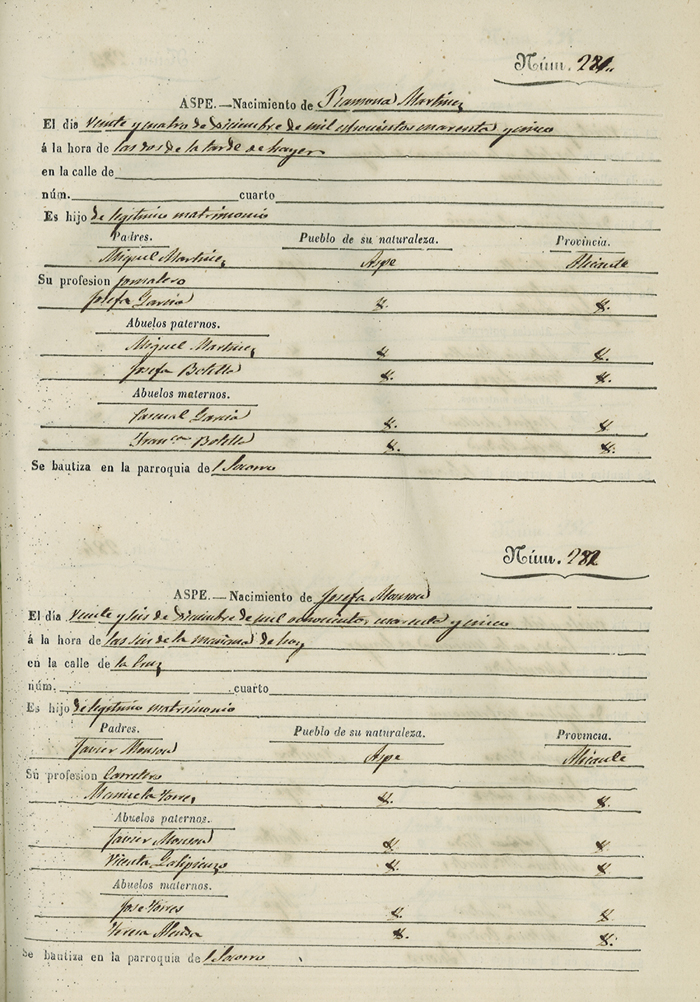 Núm. 281.
ASPE.—Nacimiento de Ramona Martinez
El dia veinte y cuatro de Diciembre de mil ochocientos cuarenta y cinco
á la hora de las dos de la tarde de hayer
en la calle de
núm. cuarto
Es hijo de legitimo matrimonio
Padres. Pueblo de su naturaleza. Provincia.
Miguel Martinez Aspe Alicante
Su profesion jornalero
Josefa Garcia
Abuelos paternos.
Miguel Martinez
Josefa Botella
Abuelos maternos.
Pascual Garcia
Franca Botella
Se bautiza en la parroquia del Socorro
Núm. 282
ASPE.—Nacimiento de Josefa Monzon
El día veinte y seis de Diciembre de mil ochocientos cuarenta y cinco
á la hora de las seis de la mañana de hoy
en la calle de la Cruz
núm. cuarto
Es hijo de legitimo matrimonio
Padres. Pueblo de su naturaleza. Provincia.
Javier Monzon Aspe Alicante
Su profesion Carretero
Manuela Torres
Abuelos paternos.
Javier Monzon
Vicenta Galipienzo
Abuelos maternos.
Jose Torres
Teresa
Se bautiza en la parroquia del Socorro